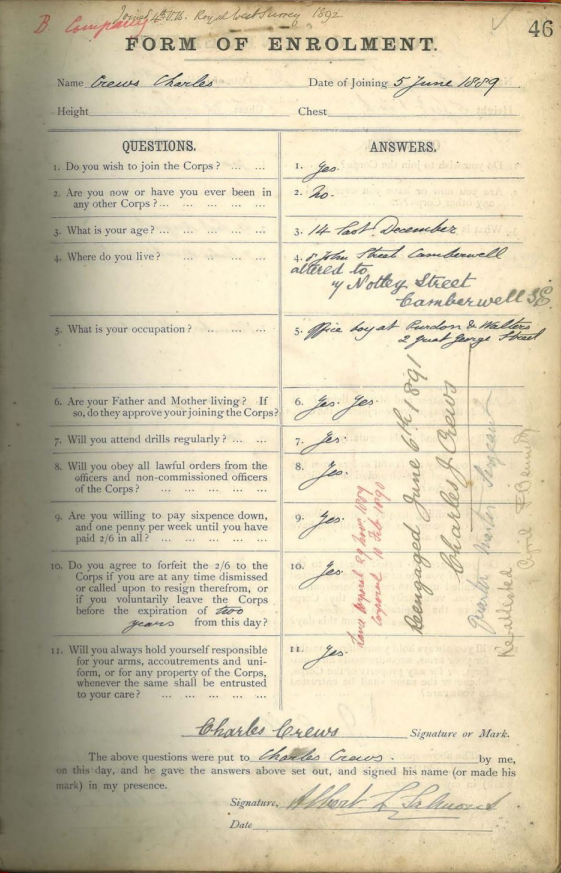 B. Company
Joined 4th V.B. Royal West Surrey 1892
46
FORM OF ENROLMENT.
Name Crews Charles Date of Joining 5 June 1889
Height Chest
QUESTIONS. ANSWERS.
1. Do you wish to join the Corps? ... ... 1. Yes.
2. Are you now or have you ever been in 2. No.
any other Corps? ... ... ... ...
3. What is your age? ... ... ... ... 3. 14 last December
4. Where do you live? ... ... ... ... 4. John Street Camberwell
altered to
Notley Street
Camberwell SE
5. What is your occupation? ... ... ... 5. Office boy at Purdon & Walters
2 Great George Street
6. Are your Father and Mother living? If 6. Yes. Yes.
so, do they approve your joining the Corps?
7. Will you attend drills regularly? ... ... 7. Yes.
8. Will you obey all lawful orders from the 8. Yes.
officers and non-commissioned officers
of the Corps? ... ... ... ...
9. Are you willing to pay sixpence down, 9. Yes.
and one penny per week until you have
paid 2/6 in all? ... ... ... ...
10. Do you agree to forfeit the 2/6 to the 10. Yes.
Corps if you are at any time dismissed
or called upon to resign therefrom, or
if you voluntarily leave the Corps
before the expiration of two
years from this day?
11. Will you always hold yourself responsible 11. Yes.
for your arms, accoutrements and uni-
form, or for any property of the Corps,
whenever the same shall be entrusted
to your care? ... ... ... ...
Lance Corporal 29 Nov. 1889
Corporal 10 Feb 1890
Reengaged June 6th 1891
Charles J Crews
Quarter Master Sergeant
Reenlisted April
Charles Crews Signature or Mark.
The above questions were put to Charles Crews. by me,
on this day, and he gave the answers above set out, and signed his name (or made his
mark) in my presence.
Signature, Albert L Salmond
Date